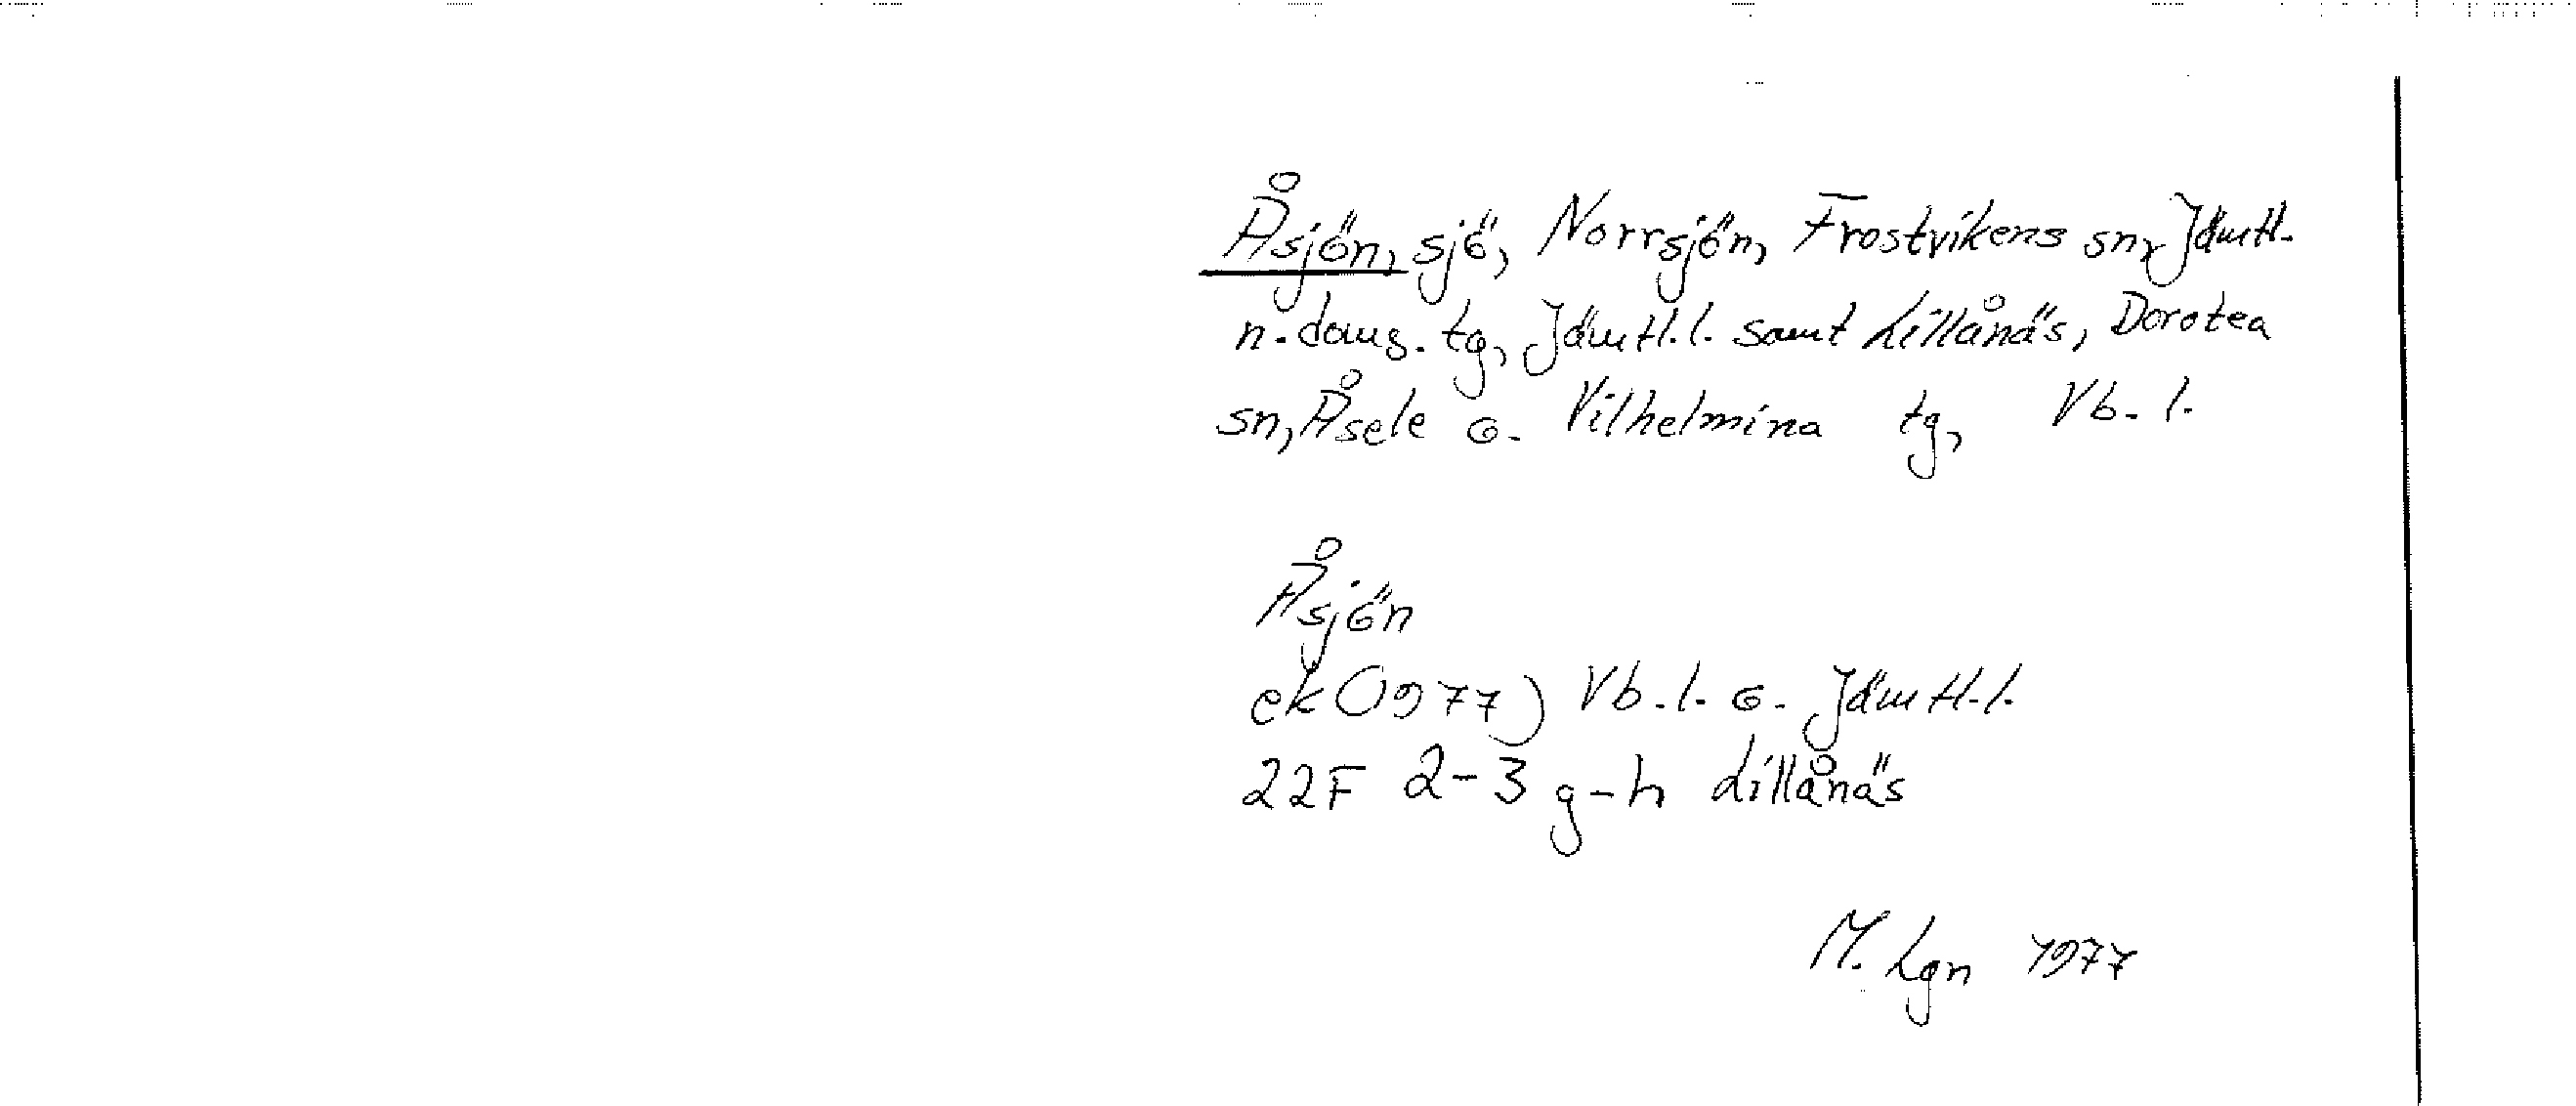 Åsjön, sjö, Norrsjön, Frostvikens sn, Jämtl.
n. doms. tg, Jämtl.l. samt Lillånäs, Dorotea
sn, Åsele o. Vilhelmina tg, Vb. l.
Åsjön
ek (1977) Vb. l. o. Jämtl.l.
22F 2-3 g-h Lillånäs
M. Lgn 1977